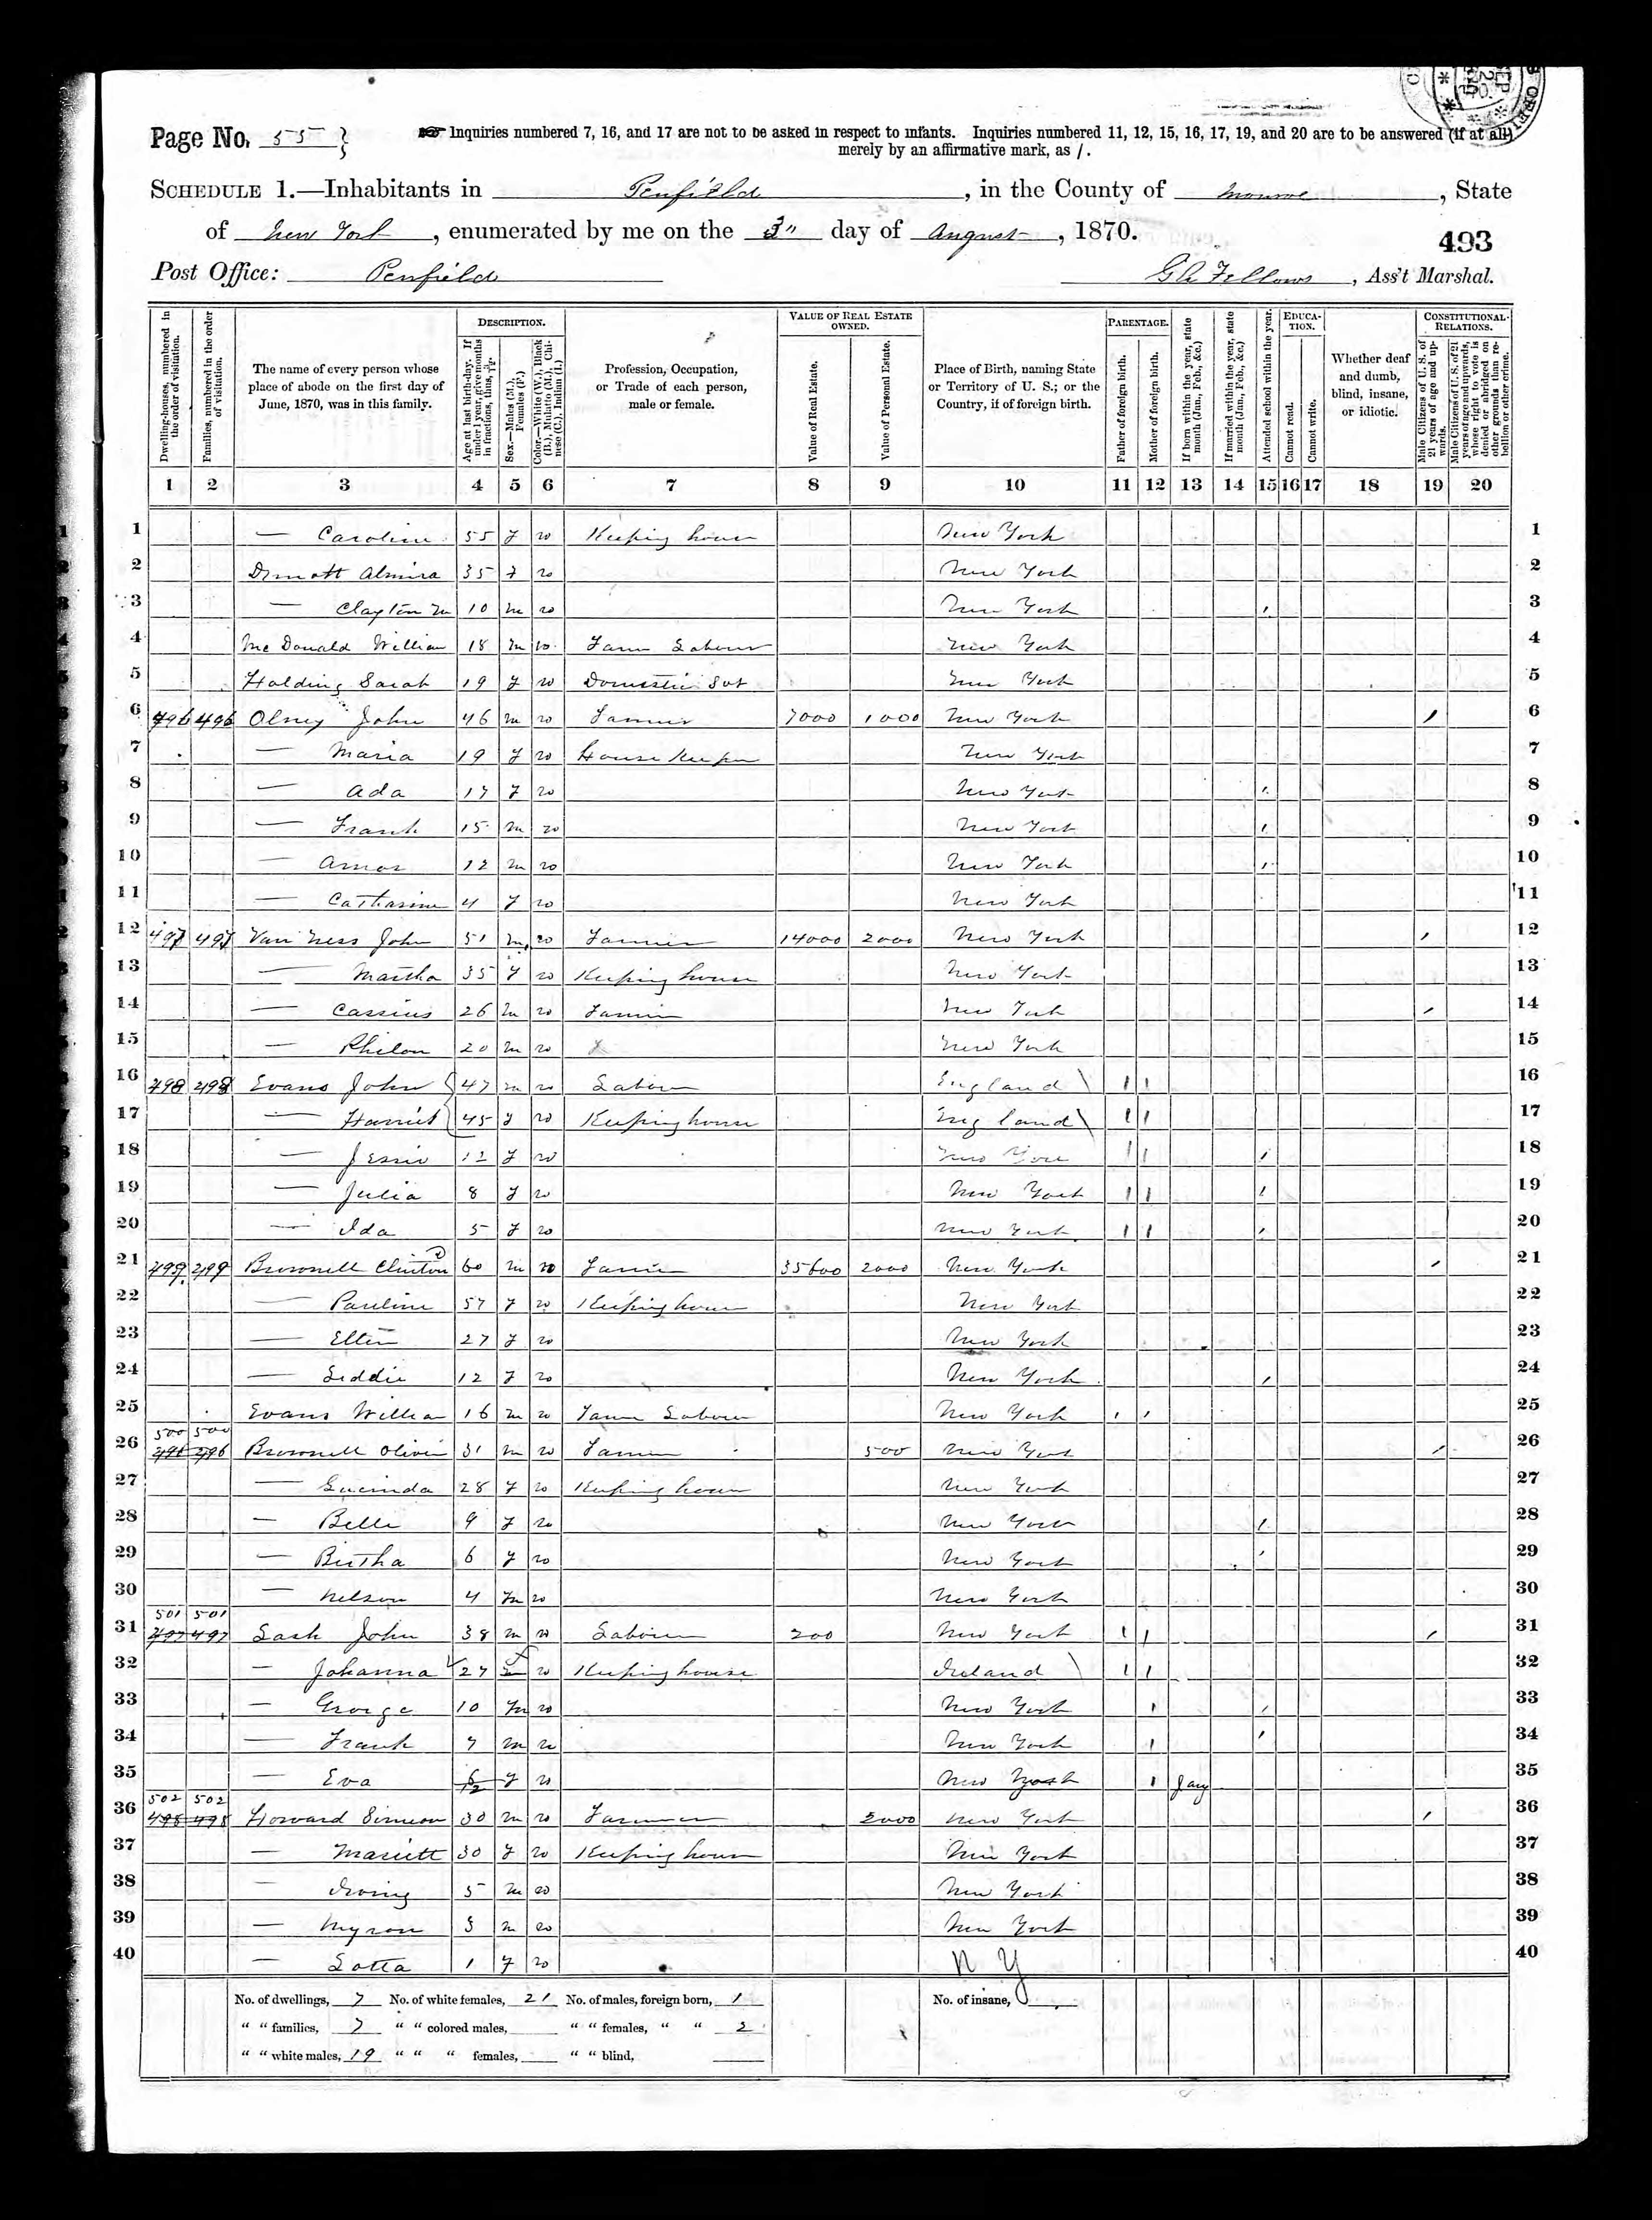 Page No. 55
Inquiries numbered 7, 16, and 17 are not to be asked in respect to infants. Inquiries numbered 11, 12, 15, 16, 17, 19, and 20 are to be answered (if at all)
merely by an affirmative mark, as /.
SCHEDULE 1.—Inhabitants in Penfield, in the County of Monroe, State
of New York, enumerated by me on the 3" day of August, 1870.
493
Post Office: Penfield Fellows, Ass't Marshal.
Dwelling-houses, numbered in the order of visitation.
Families, numbered in the order of visitation.
The name of every person whose place of abode on the first day of June, 1870, was in this family.
DESCRIPTION.
Age at last birth-day. If under 1 year, give months in fractions, thus, 3/12.
Sex.—Males (M.), Females (F.)
Color.—White (W.), Black (B.), Mulatto (M.), Chinese (C.), Indian (I.)
Profession, Occupation, or Trade of each person, male or female.
VALUE OF REAL ESTATE OWNED.
Value of Real Estate.
Value of Personal Estate.
Place of Birth, naming State or Territory of U. S.; or the Country, if of foreign birth.
PARENTAGE.
Father of foreign birth.
Mother of foreign birth.
If born within the year, state month (Jan., Feb., &c.)
If married within the year, state month (Jan., Feb., &c.)
Attended school within the year.
EDUCATION.
Cannot read.
Cannot write.
Whether deaf and dumb, blind, insane, or idiotic.
CONSTITUTIONAL RELATIONS.
Male Citizens of U. S. of 21 years of age and upwards.
Male Citizens of U. S. of 21 years of age and upwards, whose right to vote is denied or abridged on other grounds than rebellion or other crime.
1 2 3 4 5 6 7 8 9 10 11 12 13 14 15 16 17 18 19 20
1 — Caroline 55 F W Keeping house New York 1
2 Almira 35 F W New York 2
3 — Clayton M 10 M W New York / 3
4 McDonald William 18 M W Farm Laborer New York 4
5 Holding Sarah 19 F W Domestic Svt New York 5
6 496 496 Olney John 46 M W Farmer 7000 1000 New York / 6
7 — Maria 19 F W House Keeper New York 7
8 — Ada 17 F W New York / 8
9 — Frank 15 M W New York / 9
10 — Amos 12 M W New York / 10
11 — Catharine 4 F W New York 11
12 497 497 Van Ness John 51 M W Farmer 14000 2000 New York / 12
13 — Martha 35 F W Keeping house New York 13
14 — Cassius 26 M W Farmer New York / 14
15 — Philon 20 M W New York 15
16 498 498 Evans John 47 M W Laborer England / / 16
17 — Harriet 45 F W Keeping house England / / 17
18 — Jessie 12 F W New York / / / 18
19 — Julia 8 F W New York / / / 19
20 — Ida 5 F W New York / / / 20
21 499 499 Brownell Clinton 60 M W Farmer 35600 2000 New York / 21
22 — Pauline 57 F W Keeping house New York 22
23 — Ellen 27 F W New York 23
24 — Liddie 12 F W New York / 24
25 Evans William 16 M W Farm Laborer New York / / 25
500 500
26 496 496 Brownell Oliver 31 M W Farmer 500 New York / 26
27 — Lucinda 28 F W Keeping house New York 27
28 — Belle 9 F W New York / 28
29 — Birtha 6 F W New York / 29
30 — Nelson 4 M W New York 30
501 501
31 497 497 Lash John 38 M W Laborer 200 New York / / / 31
32 — Johanna 27 F W Keeping house Ireland / / 32
33 — George 10 M W New York / / 33
34 — Frank 7 M W New York / / 34
35 — Eva 6/12 F W New York / Jany 35
502 502
36 498 498 Howard Simeon 30 M W Farmer 2000 New York / 36
37 — Mariett 30 F W Keeping house New York 37
38 — Irving 5 M W New York 38
39 — Myron 3 M W New York 39
40 — Lotta 1 F W N Y 40
No. of dwellings, 7 No. of white females, 21 No. of males, foreign born, 1 No. of insane,
" " families, 7 " " colored males, " " females, " " 2
" " white males, 19 " " " females, " " blind,